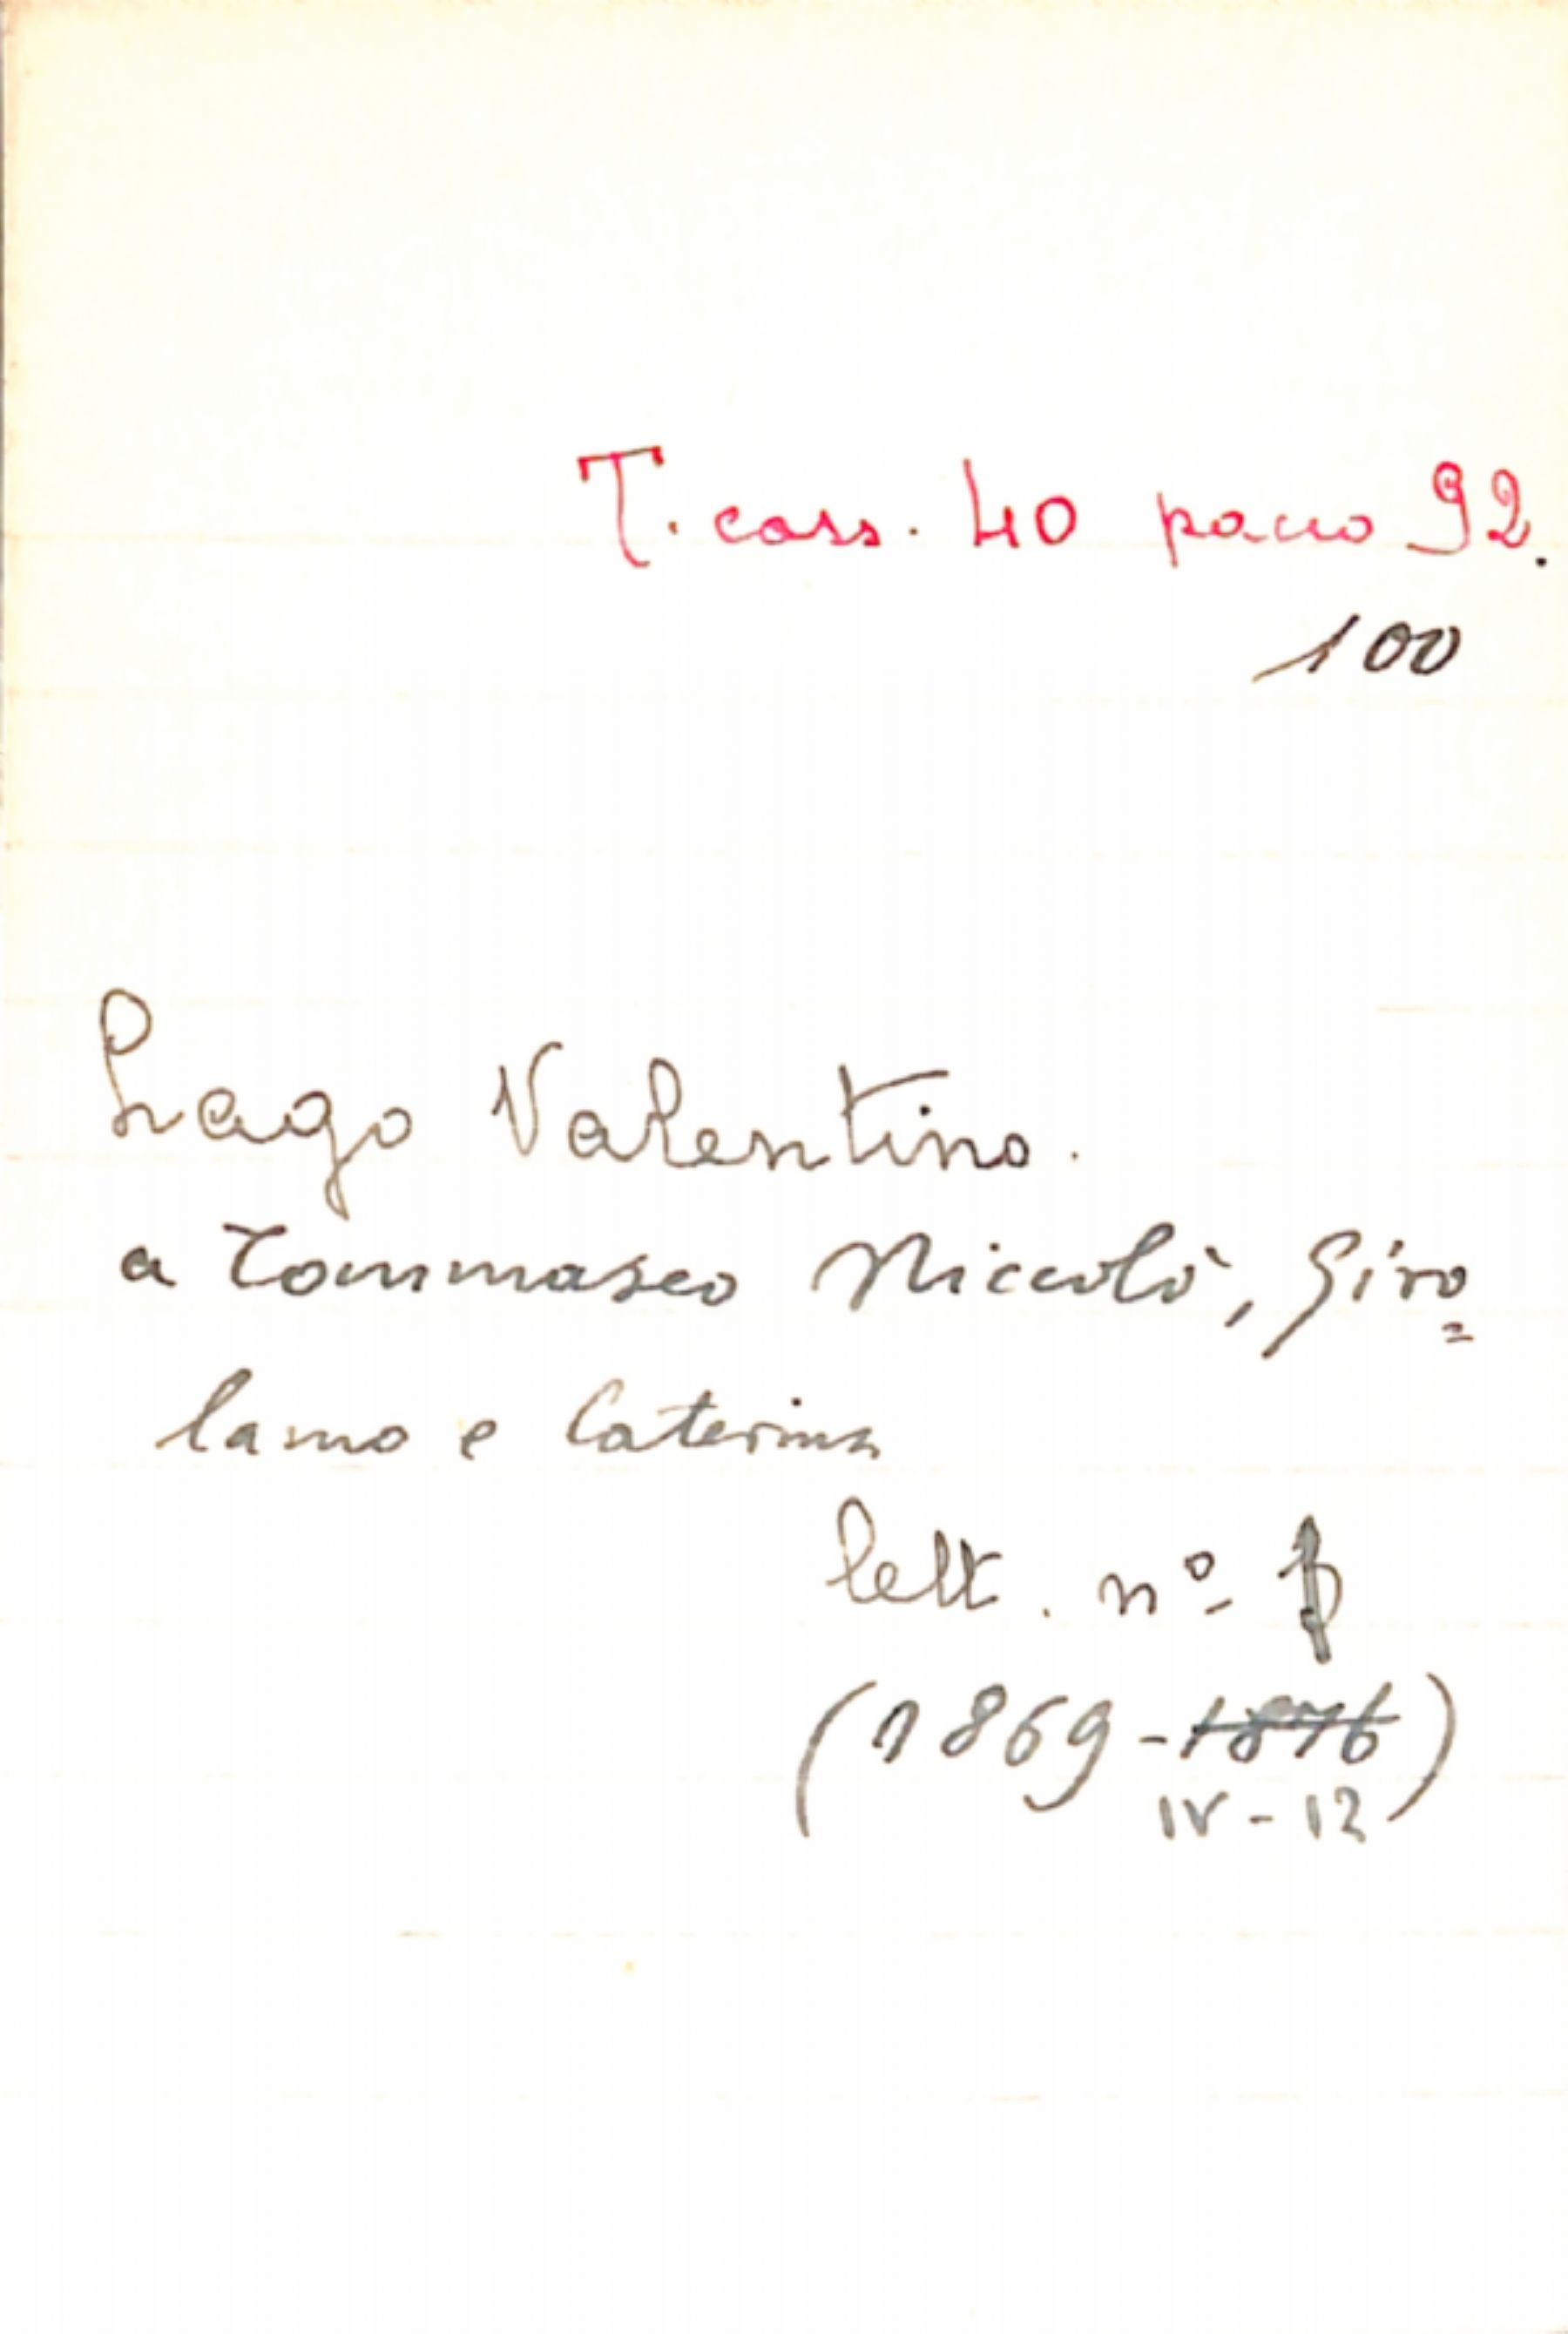 T. cass. 40 pacco 92.
100
Lago Valentino.
a Tommaseo Niccolò, Giro=
lamo e Caterina
lett. nº
(1869-1876)
IV-12